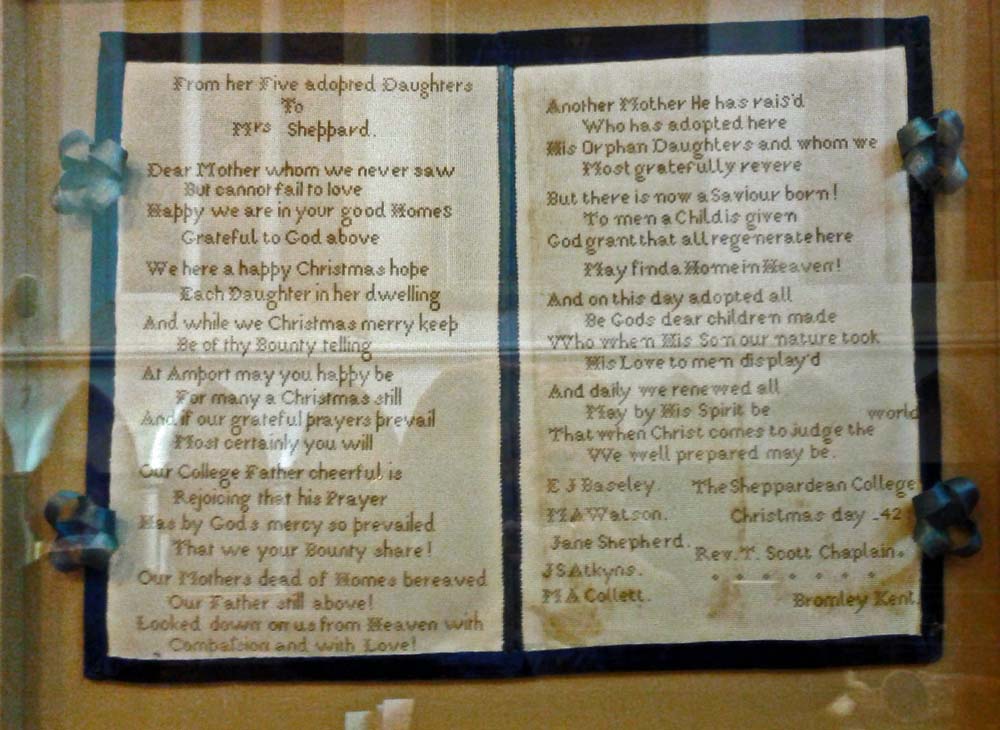 From her Five adopted Daughters
To
Mrs Sheppard.
Dear Mother whom we never saw
But cannot fail to love
Happy we are in your good Homes
Grateful to God above
We here a happy Christmas hope
Each Daughter in her dwelling
And while we Christmas merry keep
Be of thy Bounty telling
At Amport may you happy be
For many a Christmas still
And if our grateful prayers prevail
Most certainly you will
Our College Father cheerful is
Rejoicing that his Prayer
Has by Gods mercy so prevailed
That we your Bounty share!
Our Mothers dead of Homes bereaved
Our Father still above!
Looked down on us from Heaven with
Compaſsion and with Love!
Another Mother He has rais'd
Who has adopted here
His Orphan Daughters and whom we
Most gratefully revere
But there is now a Saviour born!
To men a Child is given
God grant that all regenerate here
May find a Home in Heaven!
And on this day adopted all
Be Gods dear children made
Who when His Son our nature took
His Love to men display'd
And daily we renewed all
May by His Spirit be
That when Christ comes to judge the world
We well prepared may be.
E J Baseley. The Sheppardean College
M A Watson. Christmas day -42
Jane Shepherd. Rev. T. Scott Chaplain.
J S Atkyns.
M A Collett. Bromley Kent.